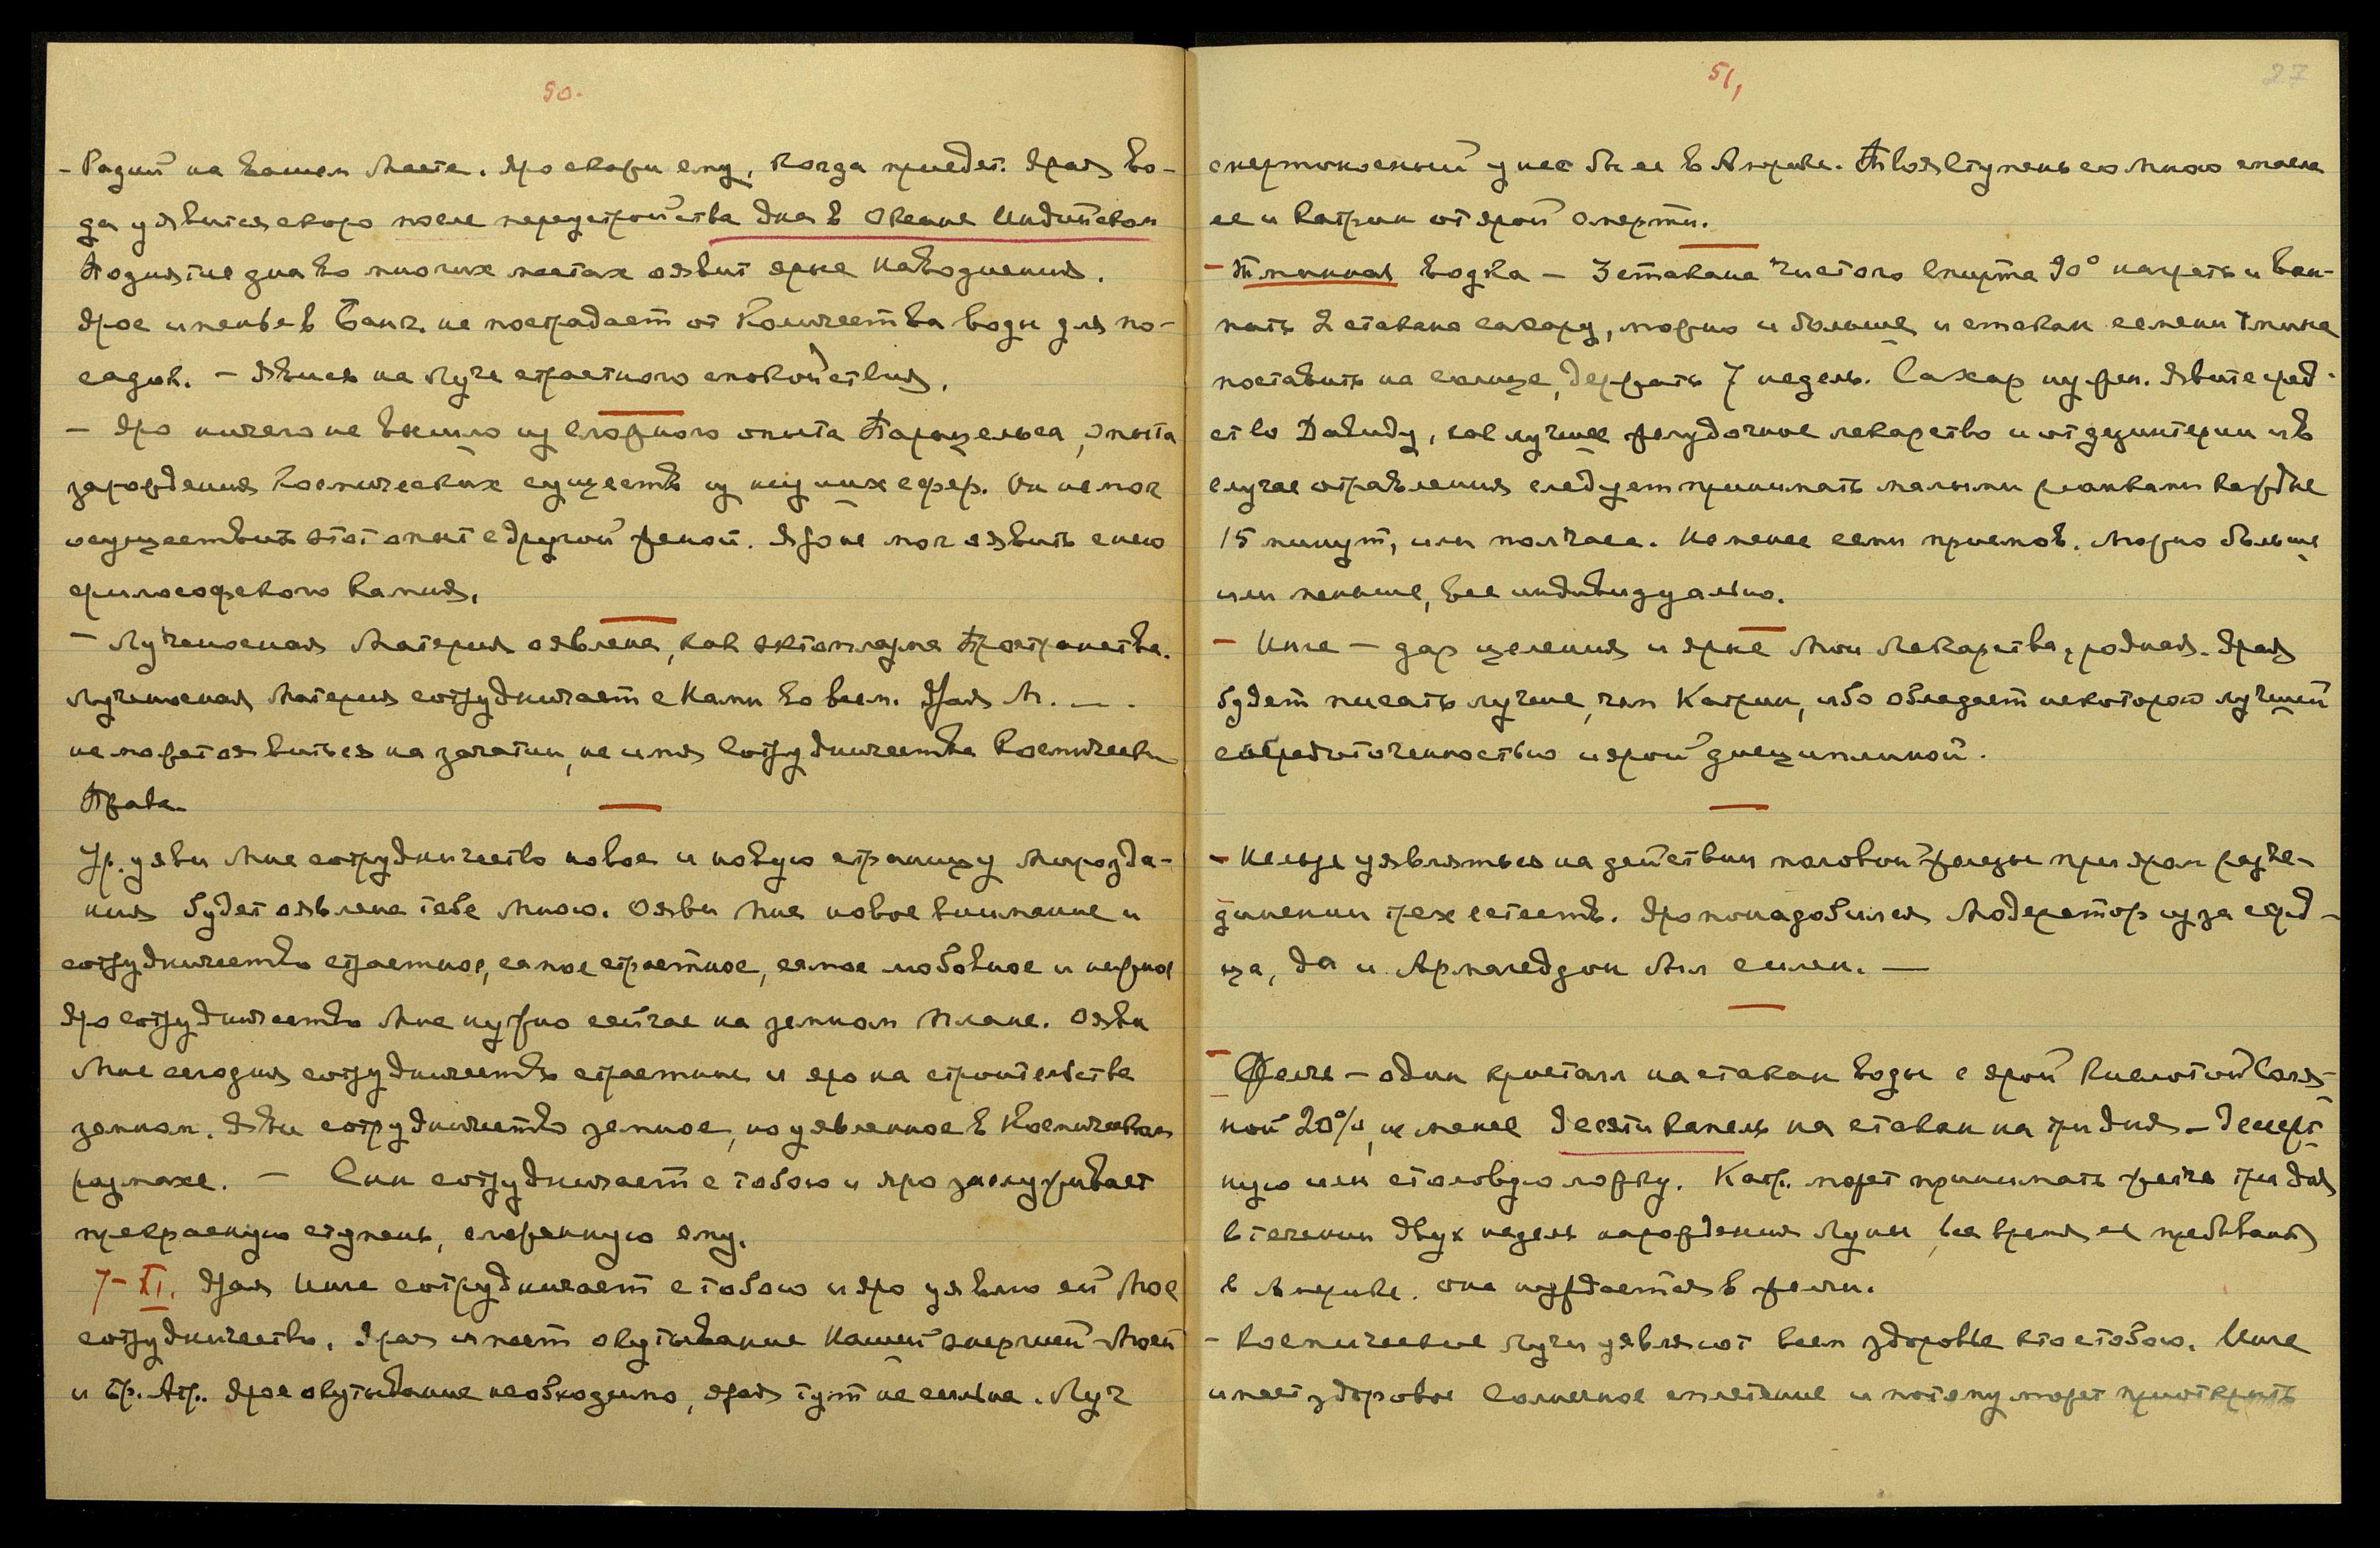 50.
– Радий на Вашем Месте. Яро скажи ему, когда приедет. Ярая во-
да уявится скоро после переустройства дна в Океане Индийском
Поднятие дна во многих местах оявит ярые наводнения.
Ярое именье в Банг. не пострадает от количества воды для по-
садок. – Явись на Луче страстного спокойствия.
– Яро ничего не вышло из сложного опыта Парацельса, опыта
зарождения космических существ из низших сфер. Он не мог
осуществить этот опыт с другой женой. Яро не мог оявить с нею
философского камня.
– Лученосная Материя оявлена, как эктоплазма Пространства.
Лученосная Материя сотрудничает с Нами во всем. Ярая М. —.
не может оявиться на зачатии, не имея Сотрудничества Космическ.
Права.
Ур. уяви Мне сотрудничество новое и новую страницу Мирозда-
ния будет оявлена тебе Мною. Ояви Мне новое внимание и
сотрудничество страстное, самое страстное, самое любовное и нежное
Яро сотрудничество Мне нужно сейчас на земном плане. Ояви
Мне сегодня сотрудничество страстное и яро на строительстве
земном. Яви сотрудничество земное, но уявленное в Космическом
размахе. – Сын сотрудничает с тобою и яро заслуживает
прекрасную ступень, сложенную ему.
7–XI. Ярая Инге сотрудничает с тобою и яро уявлю ей Мое
сотрудничество. Ярая имеет окутывание Нашей энергией – Моей
и Бр. Атр. Ярое окутывание необходимо, ярая тут не сильна. Луч
51, 27
смертоносный унес бы ее в Америке. Твоя ступень со Мною спасла
ее и Катрин от ярой смерти.
– Тминная водка – 3 стакана чистого спирта 90° нагреть и всы-
пать 2 стакана сахару, можно и больше, и стакан семени тмина
поставить на солнце, держать 7 недель. Сахар нужен. Явите сред-
ство Давиду, как лучшее желудочное лекарство и от дизентерии и в
случае отравления следует принимать малыми рюмками каждые
15 минут, или полчаса. Не менее семи приемов. Можно больше
или меньше, все индивидуально.
– Инге – дар целения и ярые Мои Лекарства, родная. Ярая
будет писать лучше, чем Катрин, ибо обладает некоторою лучшей
сосредоточенностью и ярой дисциплиной.
– Нельзя уявляться на действии половой железы при яром разъе-
динении трех естеств. Яро понадобился Модератор из за серд-
ца, да и Армагеддон был силен. —
– Желч – один кристалл на стакан воды с ярой кислотой Соля-
ной 20%, не менее десяти капель на стакан на три дня – десерт-
ную или столовую ложку. Катр. может принимать желч три дня
в течении двух недель нарождения Луны, все время ее пребывания
в Америке. она нуждается в желчи.
– Космические Лучи уявляют всем здоровье кто с тобою. Инге
имеет здоровое Солнечное сплетение и потому может приоткрыть